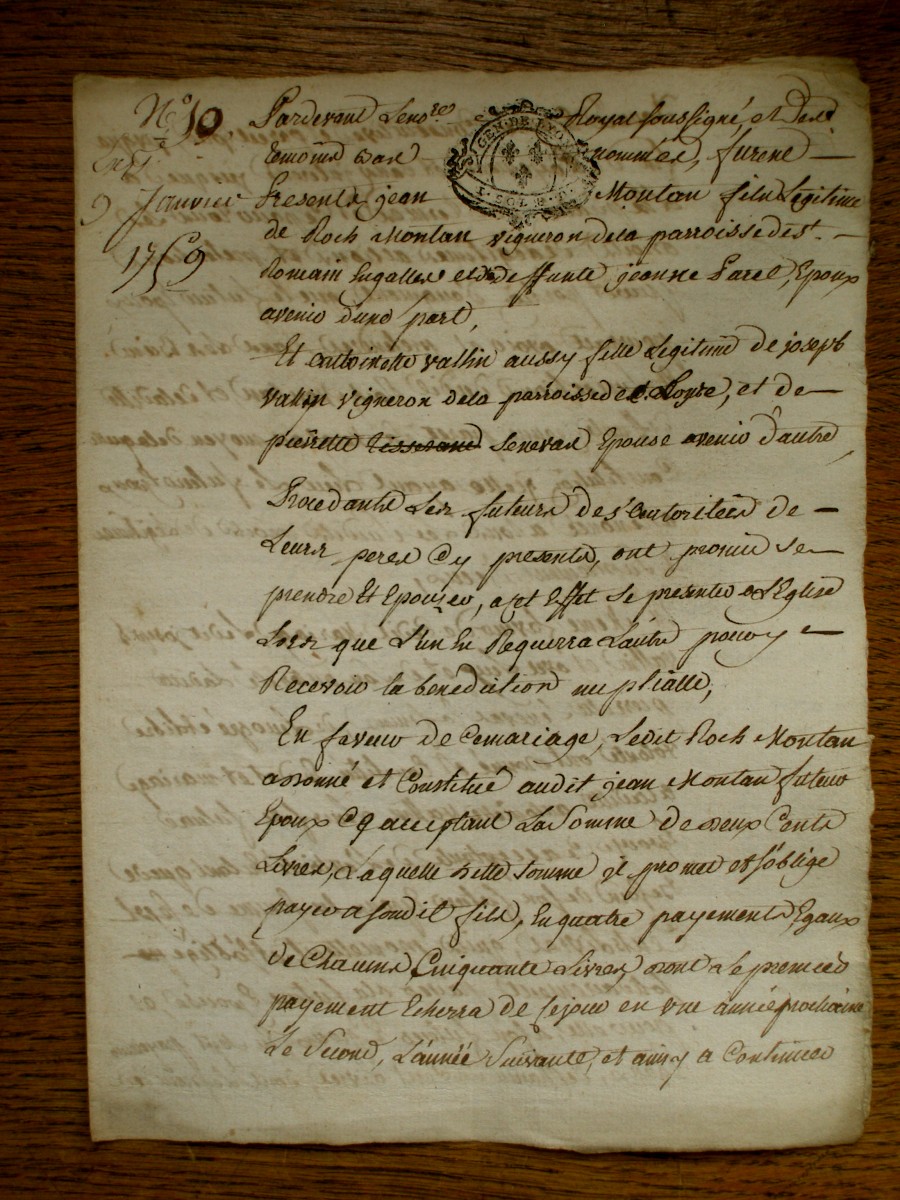 N.° 10.
9 Janvier
1759
Pardevant Le no.re Royal soussigné, et des
temoins bas nommés, furent
Presents jean Montan fils Legitime
de Roch Montan vigneron dela parroisse de st.
Romain Engallex et de deffunte jeanne Parel, Epoux
avenir d'une part,
Et antoinette vallin aussy fille Legitime de joseph
vallin vigneron dela parroisse de , et de
pierrette tisserand Senevax Epouse avenir d'autre
Procedants Les futurs des autoritées de
Leurs peres Cy presents, ont promis se
prendre Et Epouzer, a cet Effet se presenter a L'Eglise
Lors que L'un En Requerra L'autre pour y
Recevoir la benediction nuptialle,
En faveur de Cemariage, Ledit Roch Montan
a donné et Constitué audit jean Montan futeur
Epoux Cy acceptant La Somme de deux Cents
Livres, Laquelle ditte Somme il promet et s'oblige
payer a sondit fils, En quatre payements Egaux
de Chacuns Cinquante Livres, dont Le premier
payement Echerra de cejour en une année prochaine
Le Second, L'année Suivante, et ainsy a Continuer